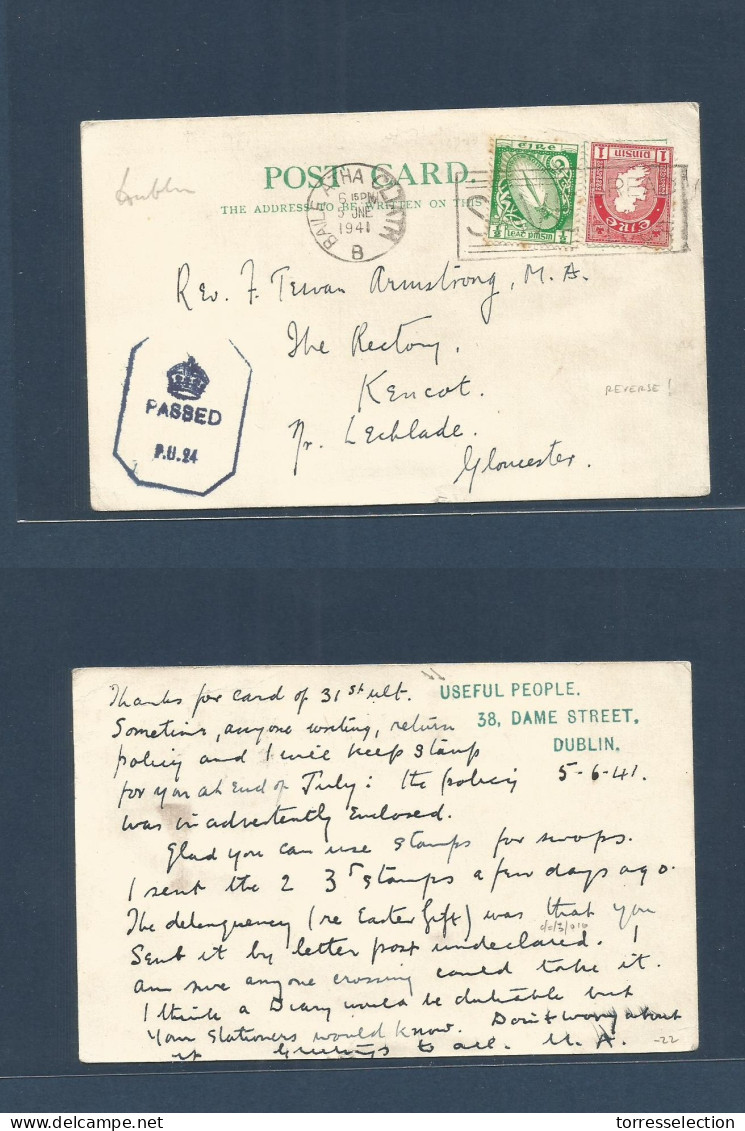 Dublin
POST CARD.
THE ADDRESS TO BE WRITTEN ON THIS
BAILE ATHA CLIATH
6 15PM
5 JNE
1941
B
EIRE
½ leat pinsin ½
1 pinsin 1
EIRE
Rev. F. Tewan Armstrong, M.A.
The Rectory.
Kencot.
Nr. Lechlade.
Gloucester.
REVERSE!
PASSED
P.U.24
USEFUL PEOPLE.
38, DAME STREET.
DUBLIN.
5-6-41.
Thanks for card of 31st ult.
Sometime, anyone writing, return
policy and I will keep stamp
for you at End of July: the policy
was inadvertently Enclosed.
Glad you can use stamps for swops.
I sent the 2 3d stamps a few days ago.
The delenquency (re Easter Gift) was that you
Sent it by letter post undeclared. I
am sure anyone crossing could take it.
I think a Diary would be dutiable but
Your Stationers would know. Don't worry about
it. Greetings to all. M.A.
-22
Your trusted partner
torresselection